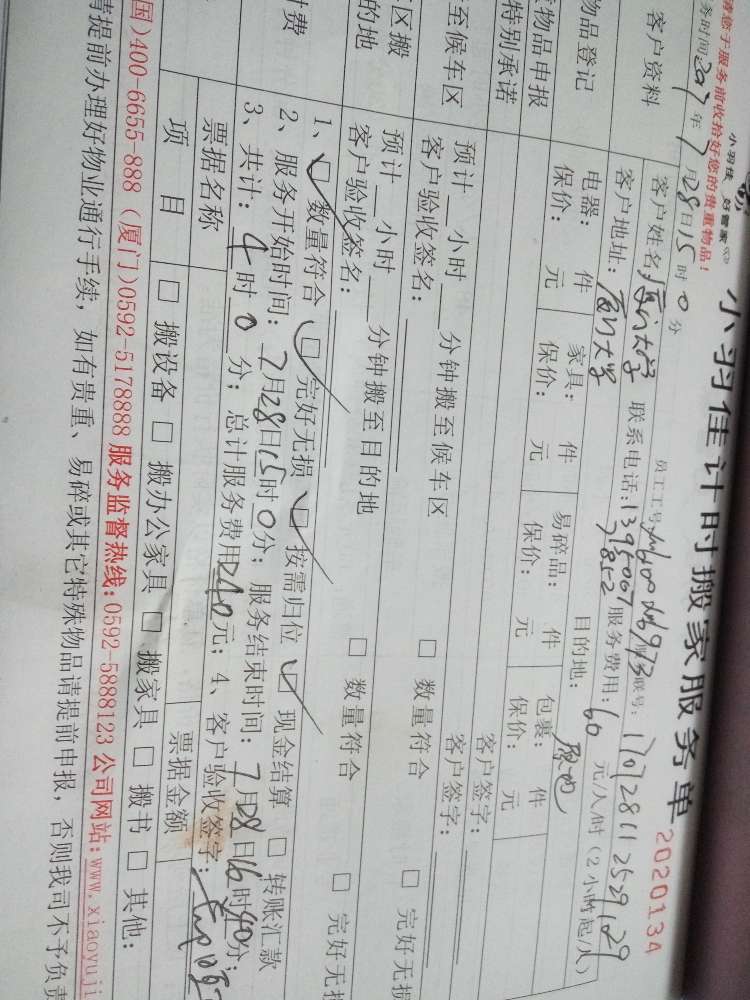 请您于服务前收拾好您的贵重物品！
小羽佳 好管家
小羽佳计时搬家服务单
2020134
务时间:2017年7月28日15时0分
员工工号:
联号:
客户资料
客户姓名:厦门大学 联系电话: 服务费用:60元/人/时（2小时起/人）
客户地址:厦门大学 目的地:原地
物品登记
电器: 件 家具: 件 易碎品: 件 包裹: 件
保价: 元 保价: 元 保价: 元 保价: 元
物品申报 客户签字:
特别承诺 客户签字:
至候车区
预计__小时__分钟搬至候车区 □ 数量符合 □ 完好无损
客户验收签名:
区搬
的地
预计__小时__分钟搬至目的地 □ 数量符合 □ 完好无损
客户验收签名:
付费
1、☑ 数量符合 ☑ 完好无损 ☑ 按需归位 ☑ 现金结算 □ 转账汇款
2、服务开始时间:7月28日15时0分；服务结束时间:7月28日16时40分；
3、共计:4时0分；总计服务费用240元；4、客户验收签字:
票据名称 票据金额
项 目 □ 搬设备 □ 搬办公家具 □ 搬家具 □ 搬书 □ 其他:
国)400-6655-888（厦门)0592-5178888 服务监督热线:0592-5888123 公司网站:www.xiaoyuji
请提前办理好物业通行手续，如有贵重、易碎或其它特殊物品请提前申报，否则我司不予负责